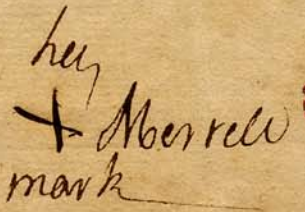 her
+ Merrell
mark